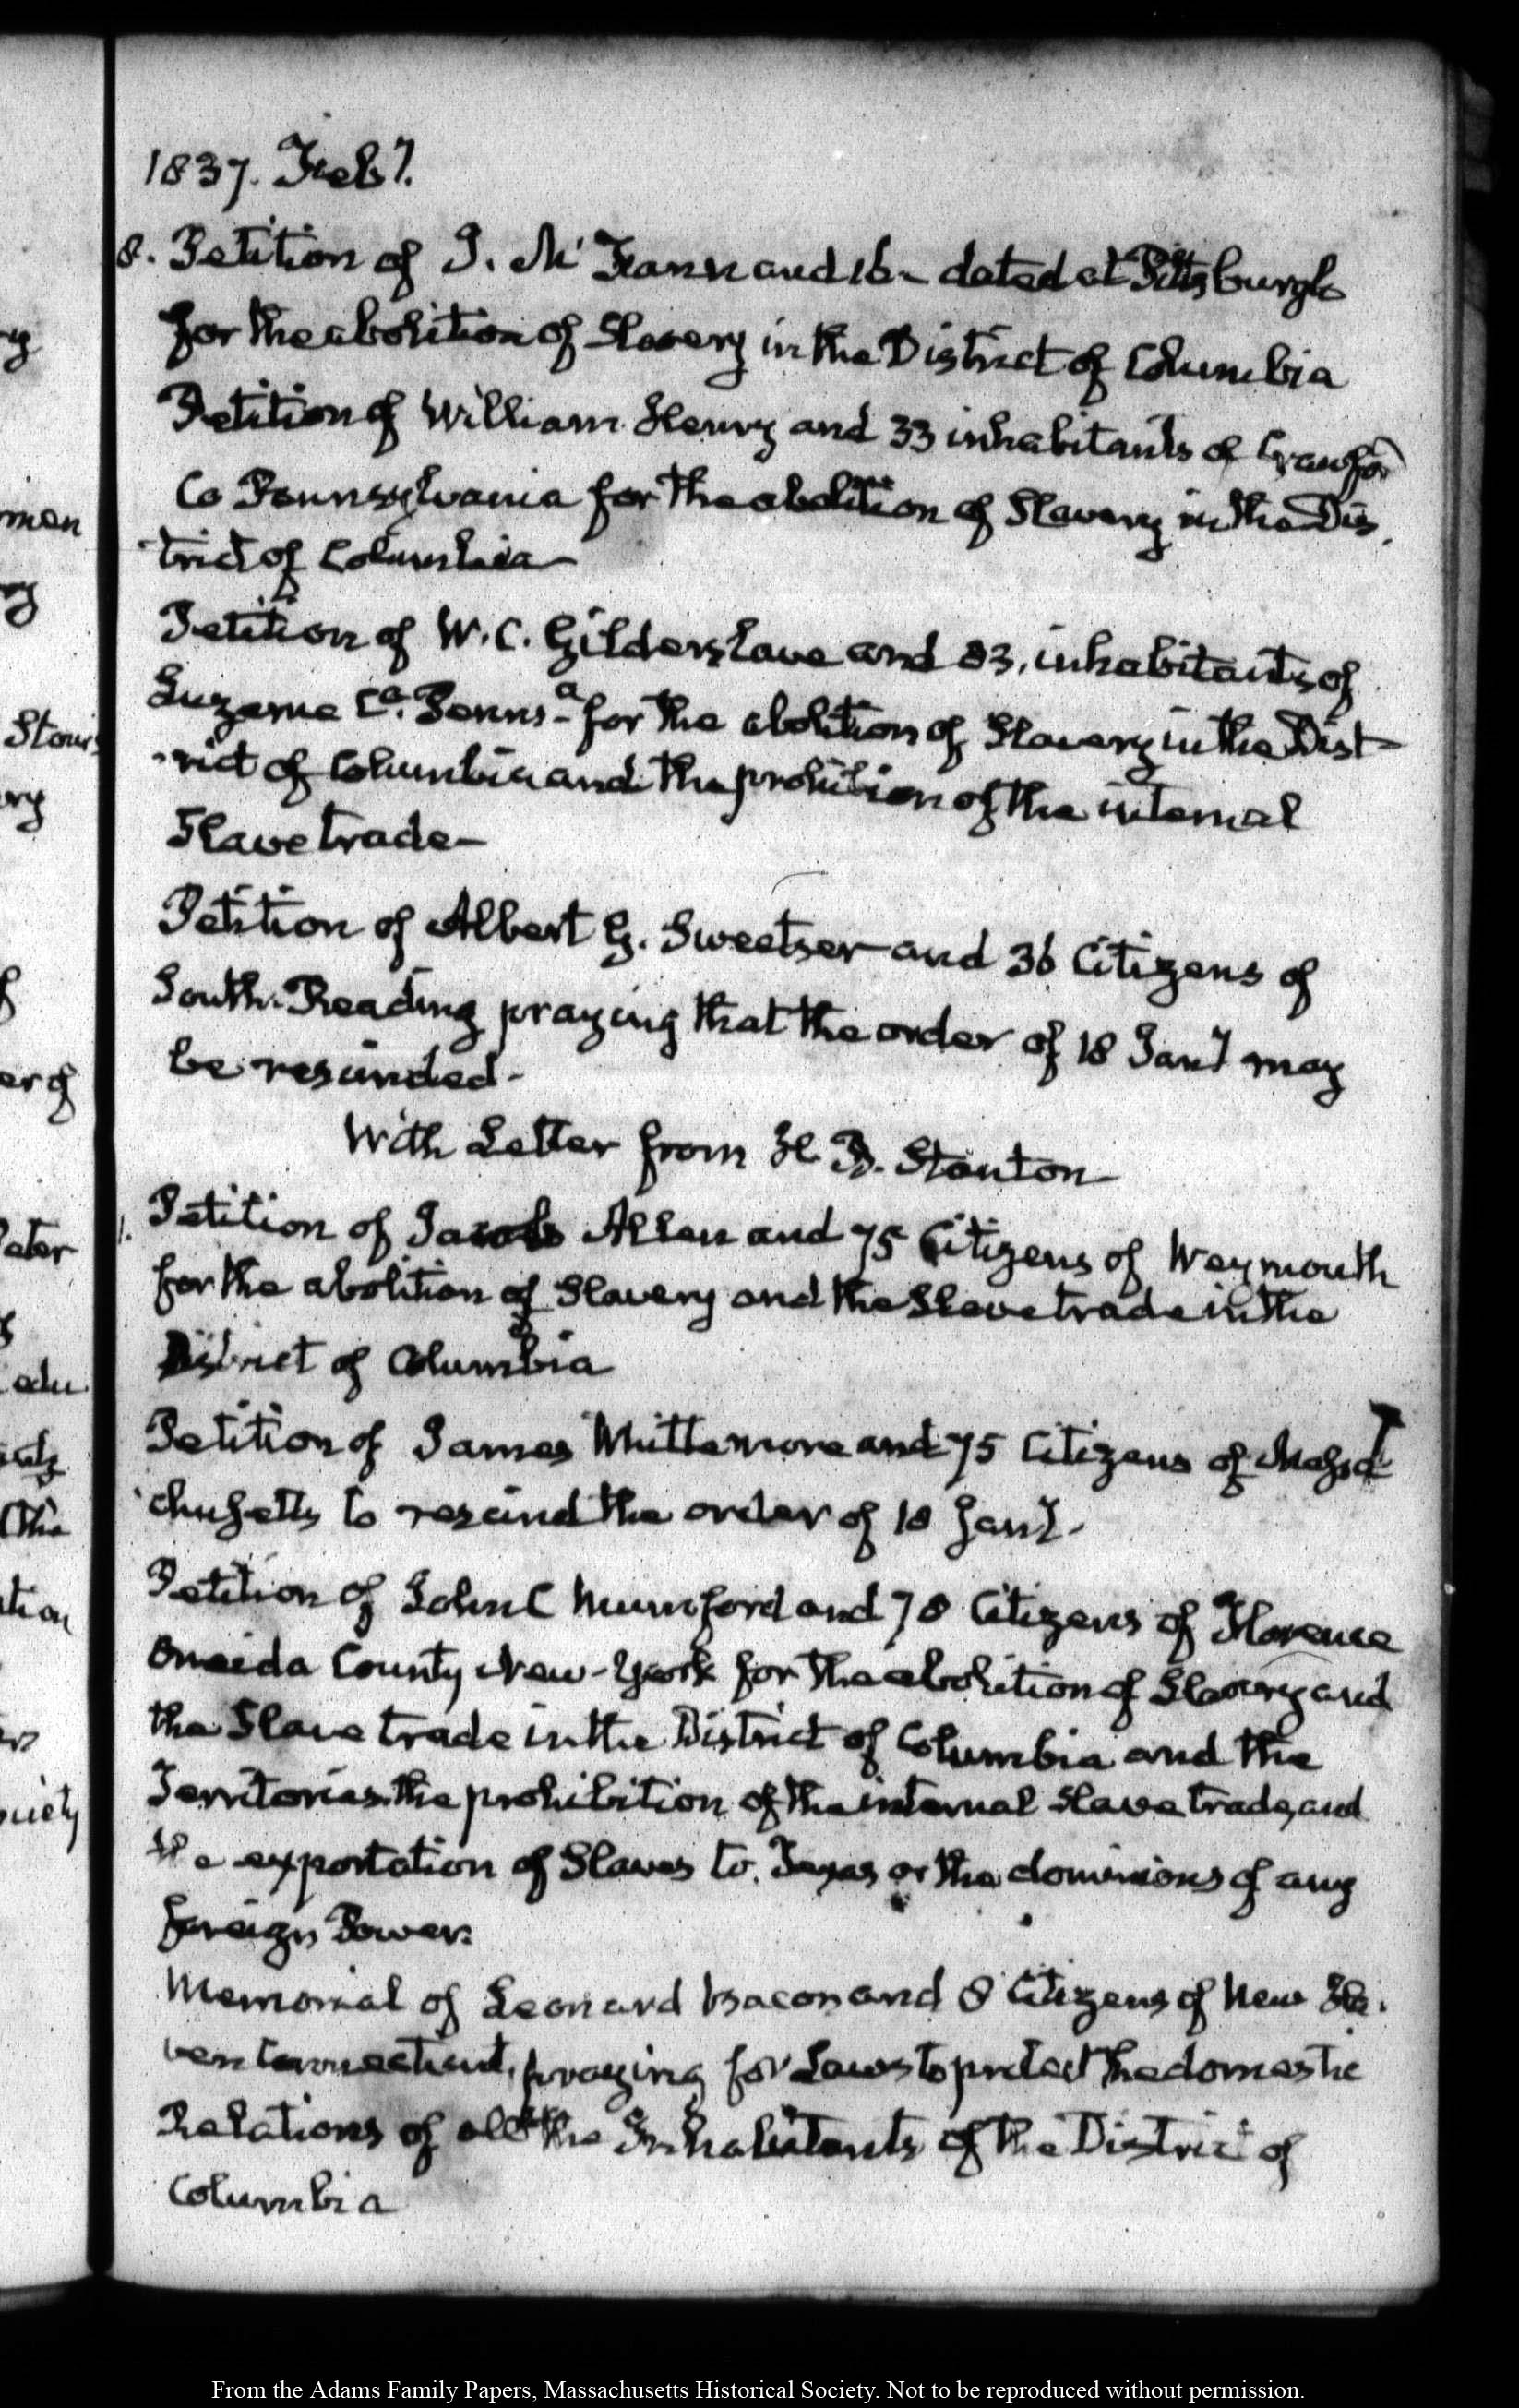 1837. Feby.
8. Petition of J. Mc and 16 - dated at Pittsburgh
for the abolition of Slavery in the District of Columbia
Petition of William Henry and 33 inhabitants of Crawford
Co Pennsylvania for the abolition of Slavery in the Dis
trict of Columbia -
Petition of W. C. Gilderslave and 83, inhabitants of
Luzerne Co. Penns-a for the abolition of Slavery in the Dist-
-rict of Columbia and the prohibion of the internal
Slave trade -
Petition of Albert G. Sweetser and 36 Citizens of
South-Reading praying that the order of 18 Jany may
be rescinded -
With Letter from H. B. Stanton -
1. Petition of Jacob Allen and 75 Citizens of Weymouth
for the abolition of Slavery and the Slave trade in the
District of Columbia
Petition of James Whittemore and 75 Citizens of Massa
chusetts to rescind the order of 18 Jany -
Petition of John C Mumford and 78 Citizens of Florence
Oneida County New-York for the abolition of Slavery and
the Slave trade in the District of Columbia and the
Territories, the prohibition of the internal Slave trade, and
the exportation of Slaves to Texas or the dominions of any
foreign Power.
Memorial of Leonard Bacon and 8 Citizens of New Ha-
ven Connecticut, praying for Laws to protect the domestic
Relations of all the Inhabitants of the District of
Columbia
From the Adams Family Papers, Massachusetts Historical Society. Not to be reproduced without permission.